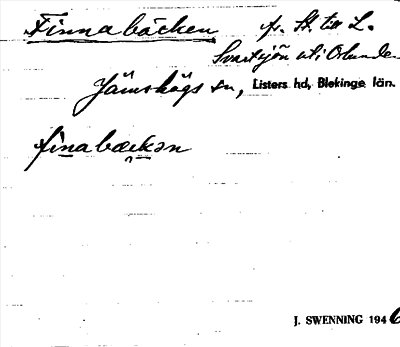 Finnabäcken fr. St. till L.
Svartsjön ut i Orlunden
Jämshögs sn, Listers hd, Blekinge län.
finabækən
J. SWENNING 1946